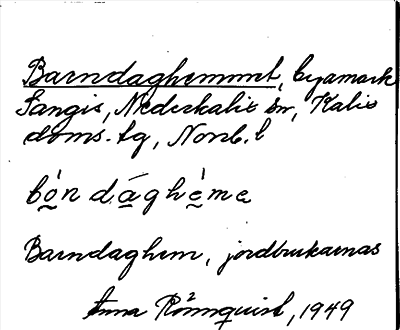 Barndaghemmet, byamark
Sangis, Nederkalix sn, Kalix
doms. lg, Norrb. l
bò̲n dá̲ghè̲me
Barndaghem, jordbrukarnas
Anna Rönnquist, 1949